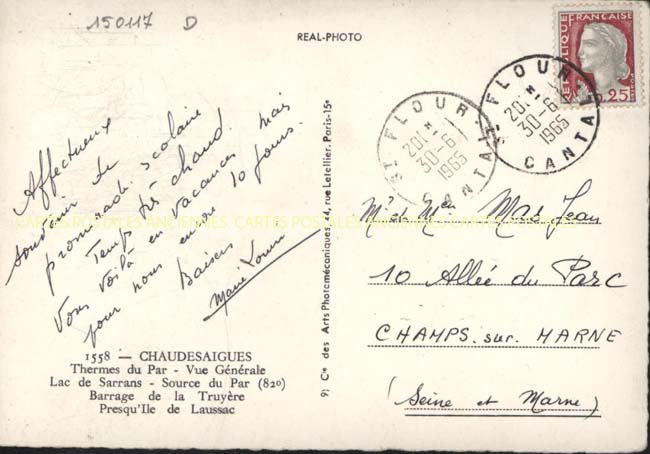 150117 D
REAL-PHOTO
RÉPUBLIQUE FRANÇAISE
0,25
POSTES
ST FLOUR
20H
30-6
1965
CANTAL
ST FLOUR
20H
30-6
1965
CANTAL
Affectueux
souvenir de
promenade scolaire
Temps très chaud.
Vous voilà en vacances mais
pour nous encore 10 jours.
Baisers
Marie
CARTES POSTALES ANCIENNES CARTES POSTALES ANCIENNES
Mr et Mme Mas Jean
10 Allée du Parc
CHAMPS. sur. MARNE
(Seine et Marne)
1558 — CHAUDESAIGUES
Thermes du Par - Vue Générale
Lac de Sarrans - Source du Par (82°)
Barrage de la Truyère
Presqu'Ile de Laussac
9) Cie des Arts Photomécaniques, 44, rue Letellier. Paris-15e